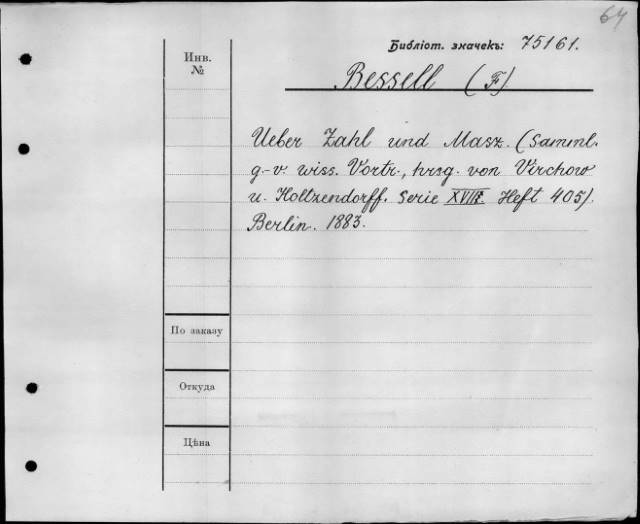 64
Библіот. значекъ: 75161.
Инв. №
Bessell (F).
Ueber Zahl und Masz. (Samml.
g.-v. wiss. Vortr., hrsg. von Virchow
u. Holtzendorff. Serie XVIII. Heft 405).
Berlin. 1883.
По заказу
Откуда
Цѣна